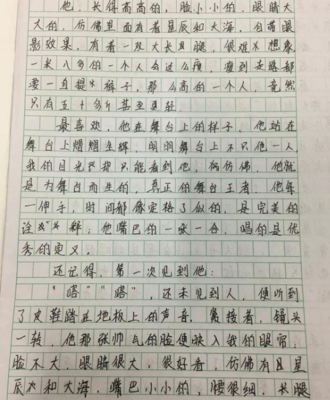 他，长得高高的，脸小小的，眼睛大
大的，仿佛里面有着星辰和大海，自带眼
影效果，有着一双大长且腿，很难想象
一米八多的一个人有这么瘦，瘦到走路都
要一直提裤子，那么高的一个人，竟然
只有五十多斤甚至更轻
最喜欢，他在舞台上的样子，他站在
舞台上熠熠生辉，明明舞台上不只他一人，
我的目光严格只能看到他，病仿佛，他就
是为舞台而生的，真正的舞台王者，他每
一伸手，时间都像定格了似的，是完美的
诠释；他嘴巴的一张一合，唱的是优
秀的定义。
还记得，第一次见到他：
“嗒”“嗒”，还未见到人，便听到
了皮鞋踏在地板上的声音，紧接着，镜头
一转，他那张帅气的脸便映入我的眼帘，
脸不大，眼睛很大，很好看，仿佛有且星
辰和大海，嘴巴小小的，腰很细，长腿